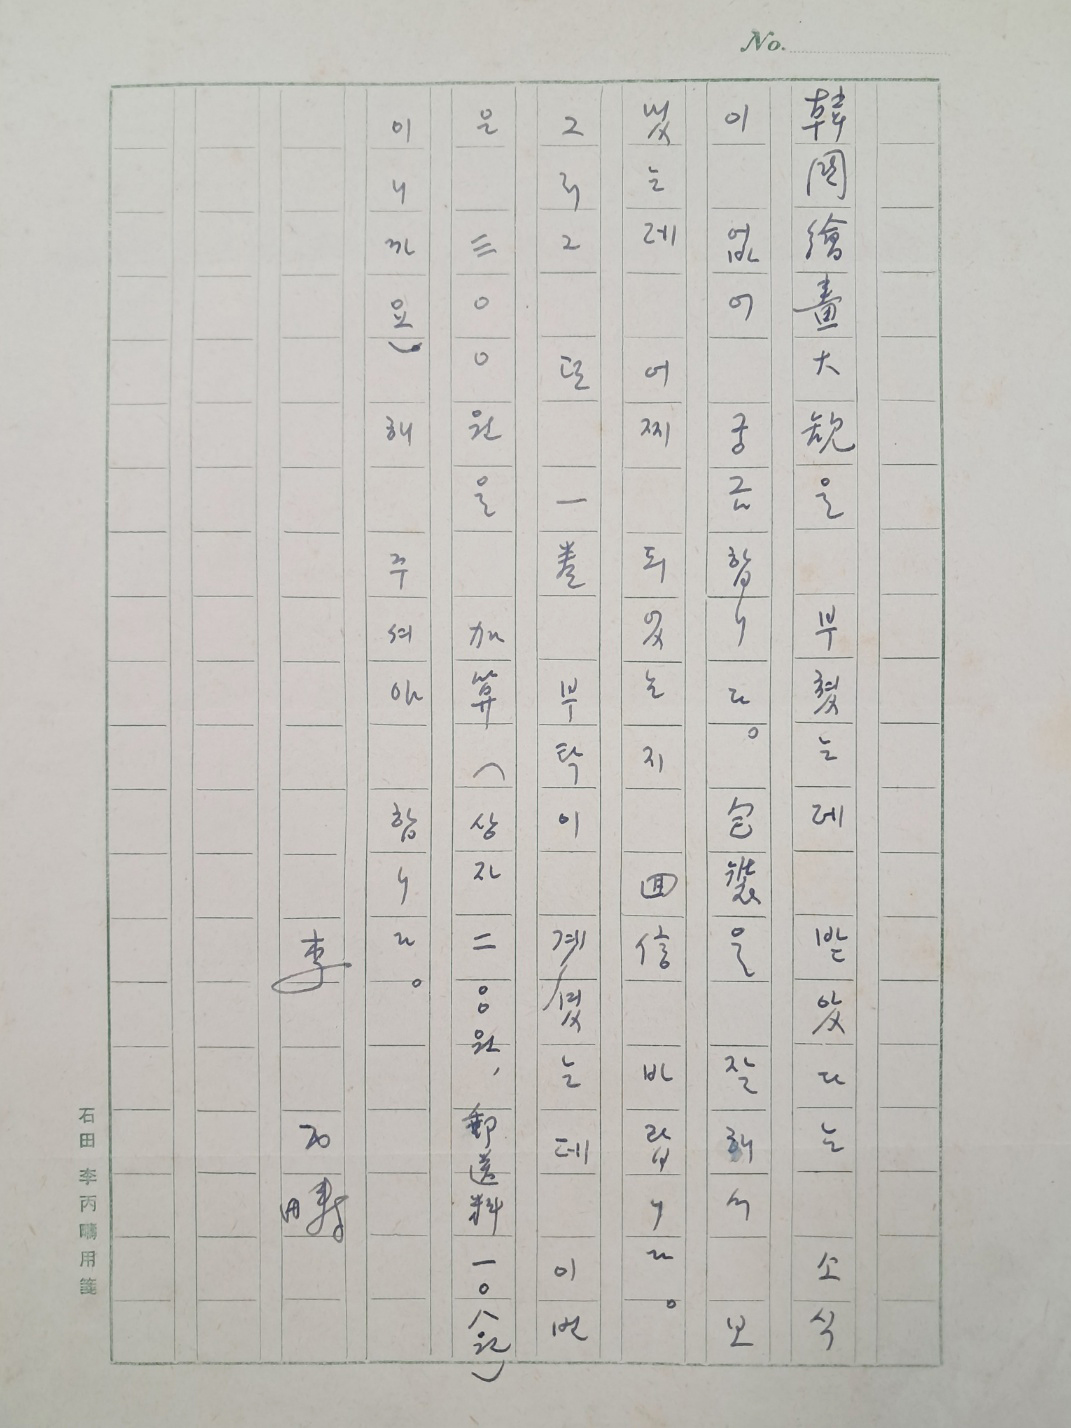 No.
韓國繪畫大觀을 부쳤는데 받았다는 소식
이 없어 궁금합니다。包裝을 잘해서 보
냈는데 어찌 되었는지 回信 바랍니다。
그리고 또 一卷 부탁이 계셨는데 이번
은 三〇〇원을 加算(상자 二〇〇원, 郵送料 一〇八원)
이니까요) 해 주셔야 합니다。
李 丙疇
石田 李丙疇用箋